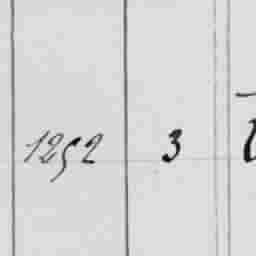 1252 3